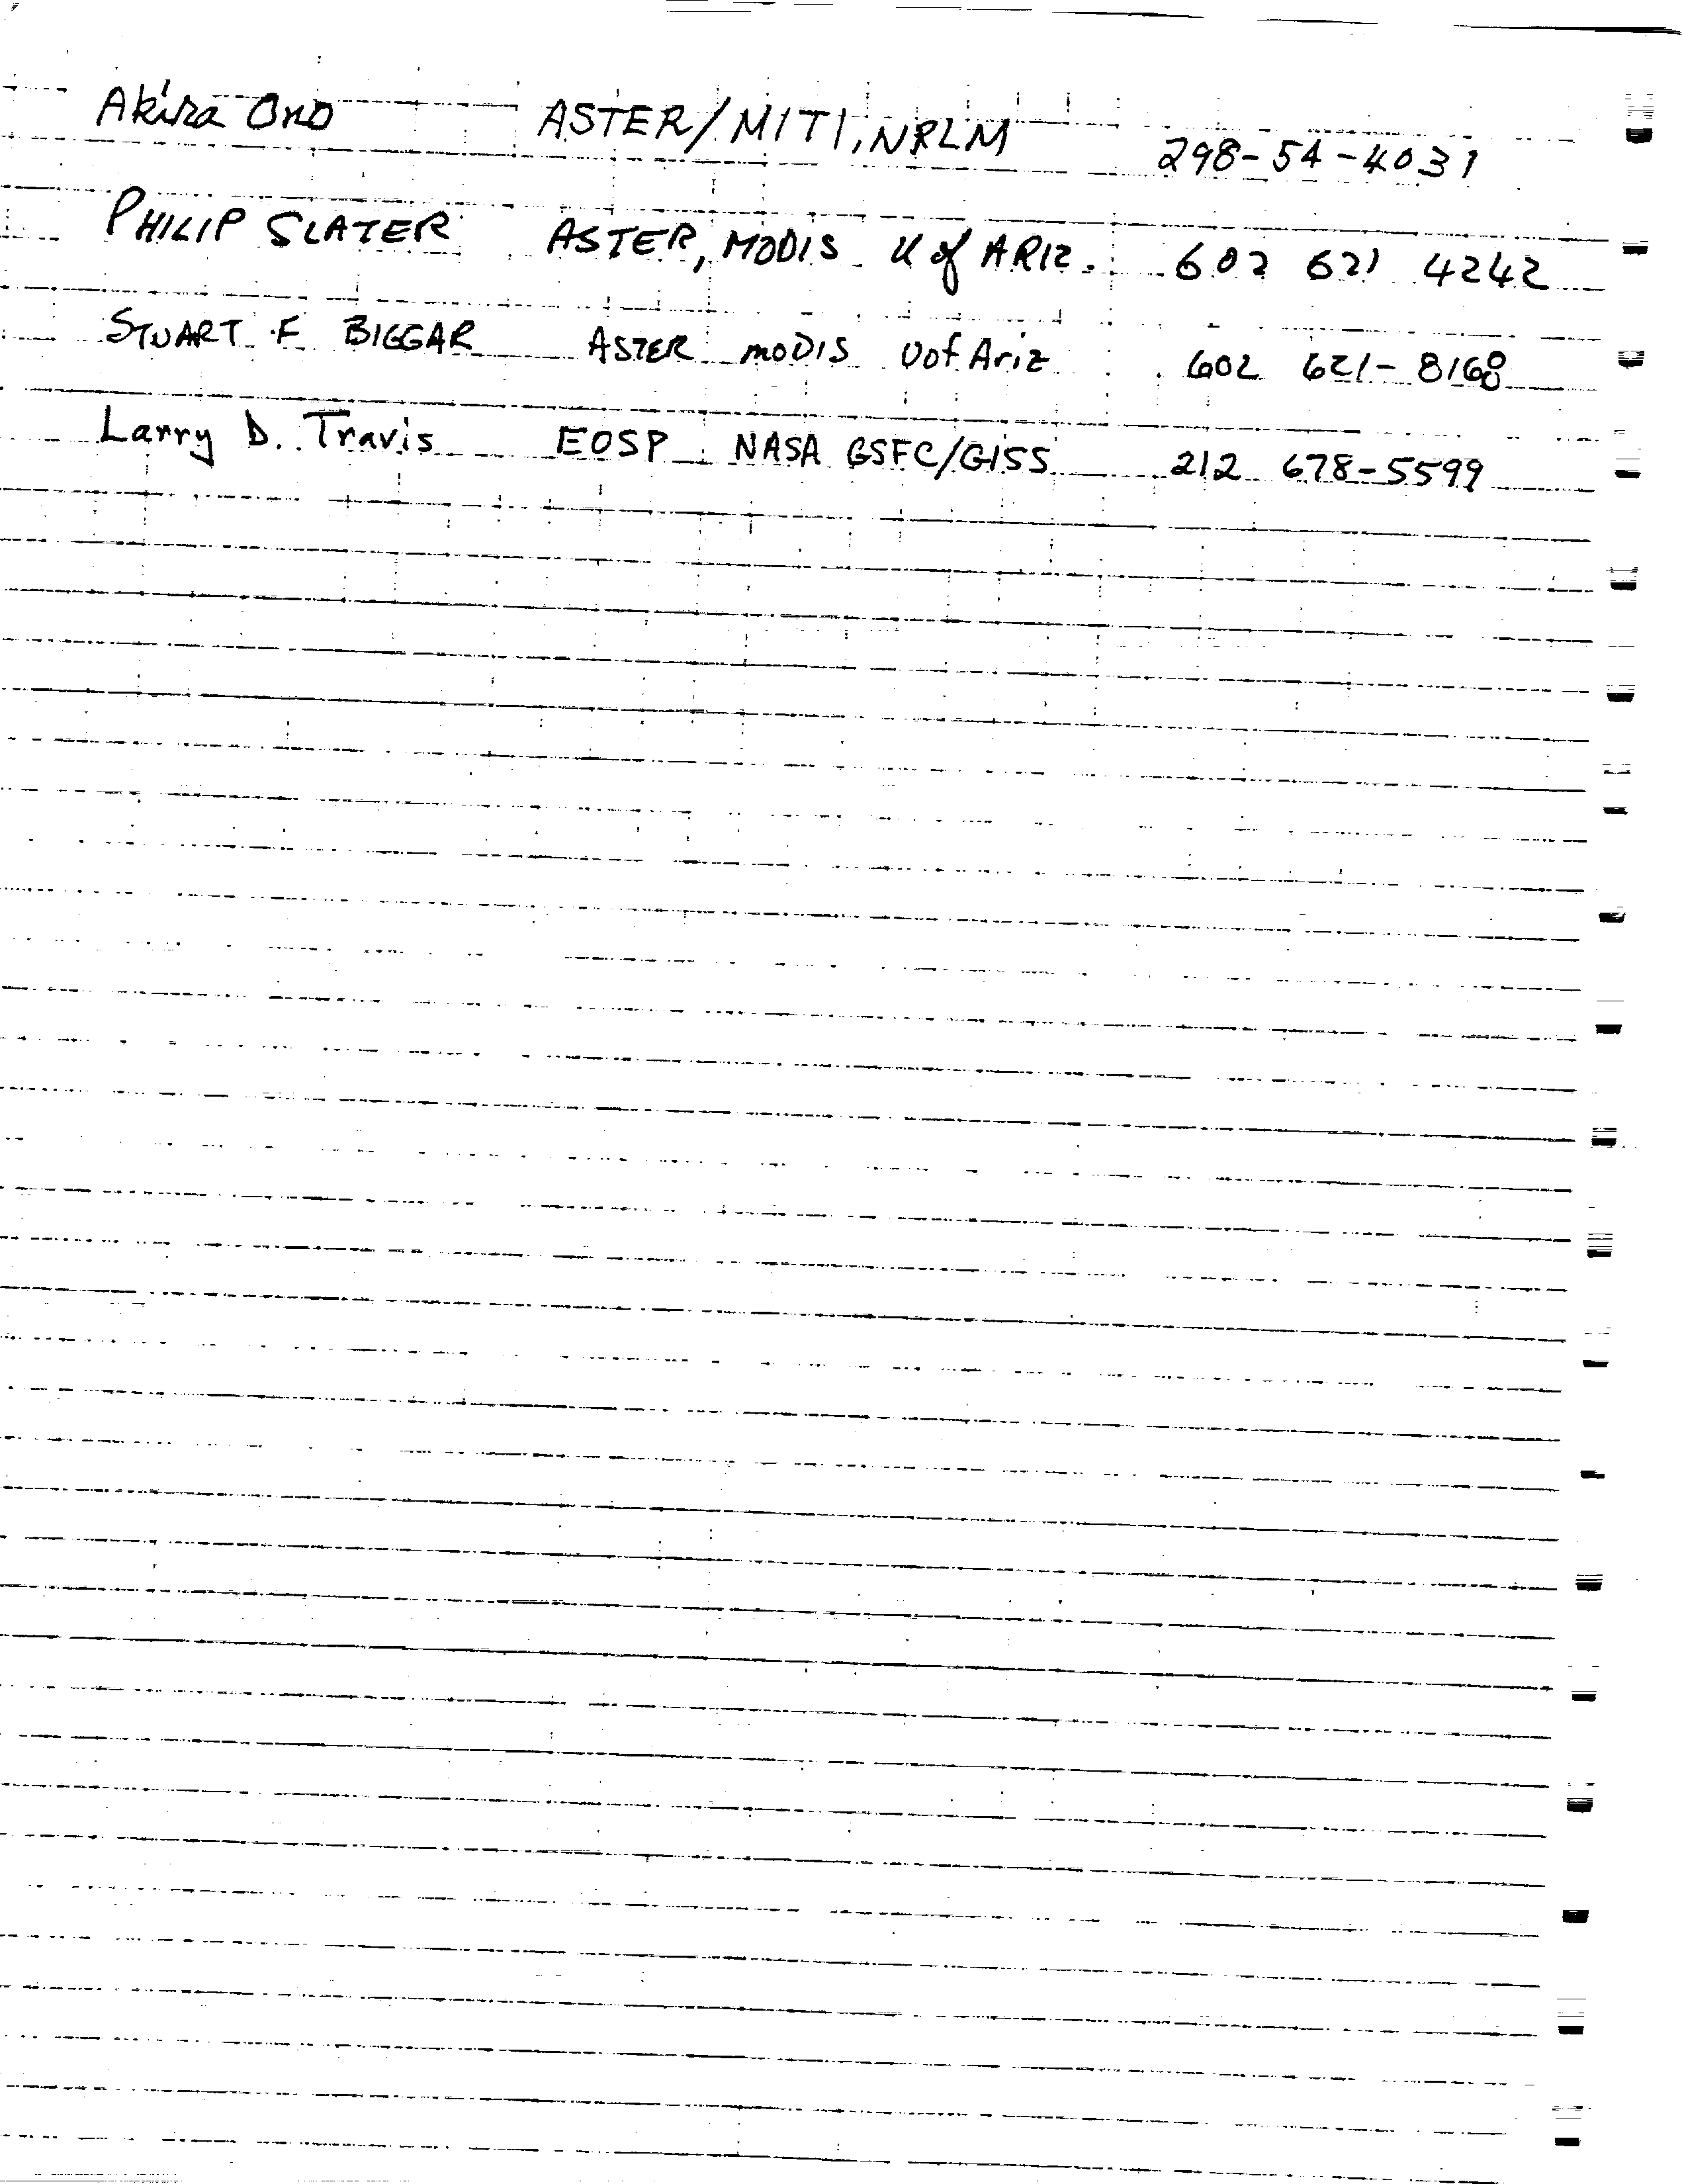 Akira Ono ASTER/MITI, NRLM 298-54-4031
PHILIP SLATER ASTER, MODIS U of ARIZ. 602 621 4242
STUART F BIGGAR ASTER MODIS U of Ariz 602 621-8168
Larry D. Travis EOSP NASA GSFC/GISS 212 678-5599